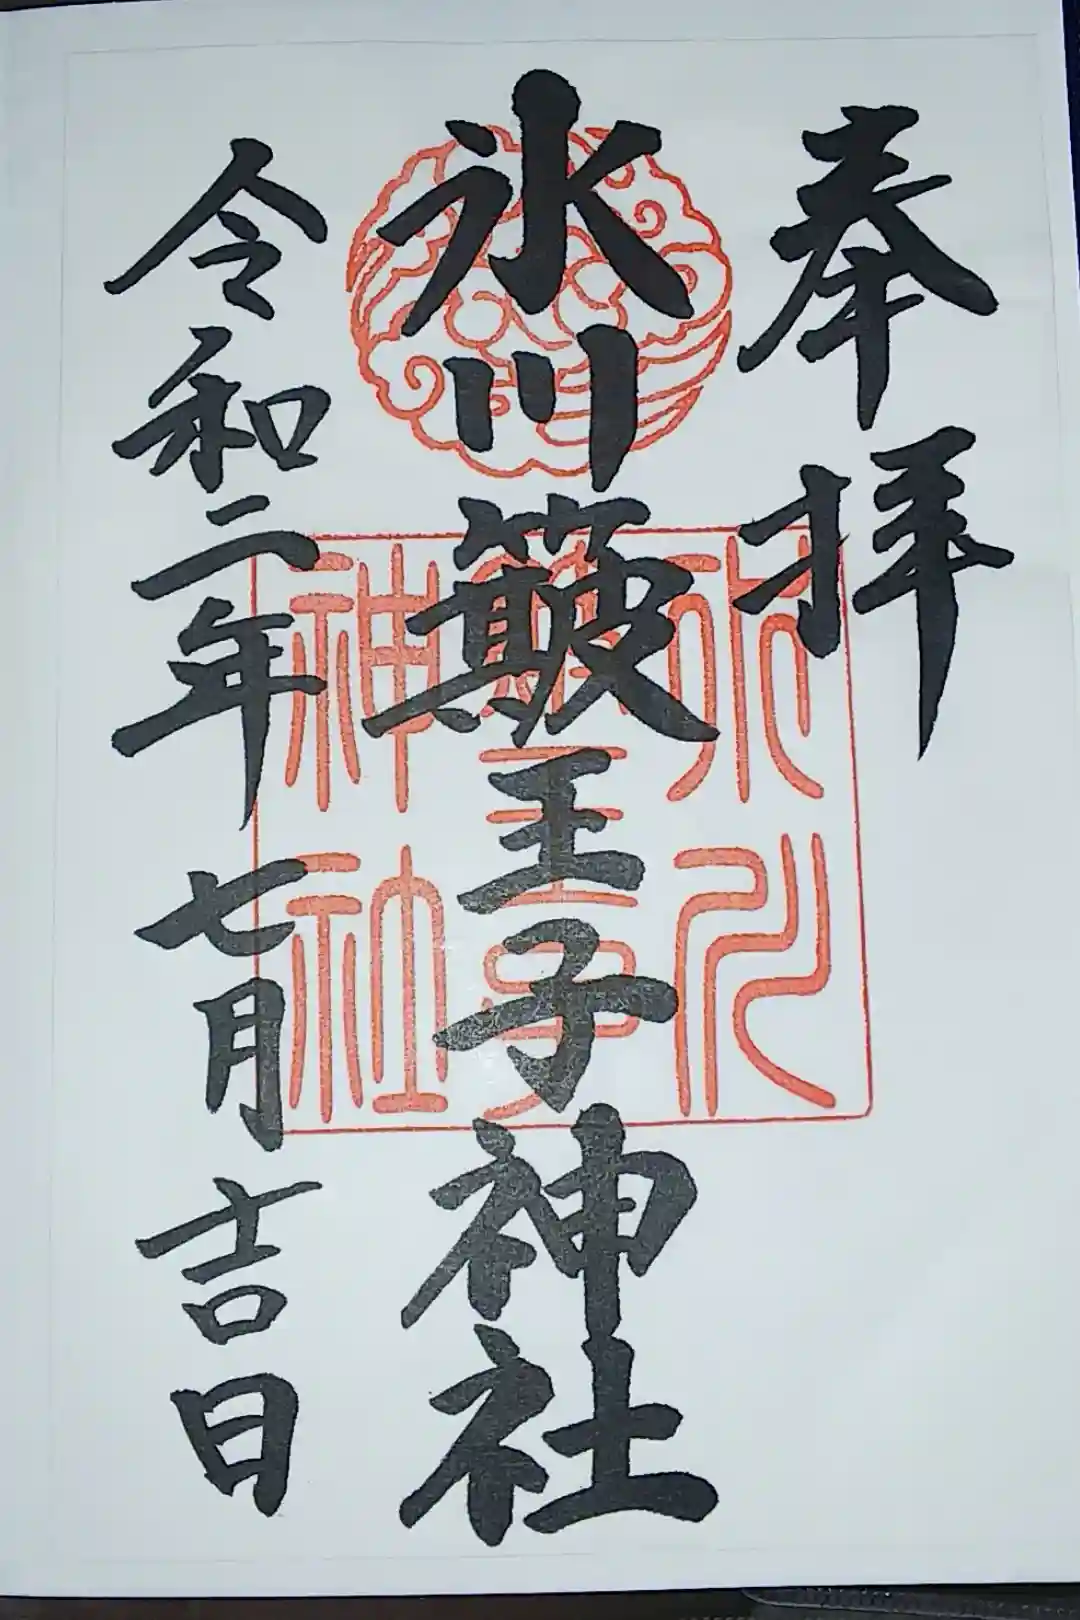 奉拝
氷川簸王子神社
令和二年七月吉日
氷川
簸王子
神社